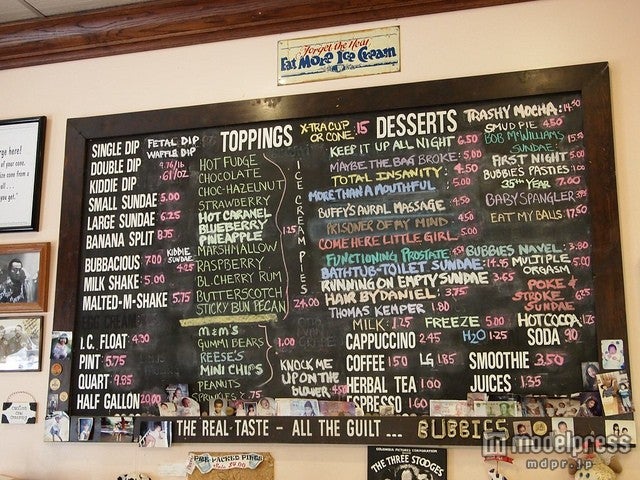 Forget the Heat
Eat More Ice Cream
rge here!
SINGLE DIP
DOUBLE DIP
KIDDIE DIP
SMALL SUNDAE 5.00
LARGE SUNDAE 6.25
BANANA SPLIT 8.75
BUBBACIOUS 7.00
MILK SHAKE 5.00
MALTED-M-SHAKE 5.75
I.C. FLOAT 4.30
PINT 5.75
QUART 9.95
HALF GALLON 20.00
FETAL DIP
WAFFLE DIP
KIDDIE
SUNDAE
4.25
TOPPINGS
HOT FUDGE
CHOCOLATE
CHOC-HAZELNUT
STRAWBERRY
HOT CARAMEL
BLUEBERRY
PINEAPPLE
MARSHMALLOW
RASPBERRY
BL. CHERRY RUM
BUTTERSCOTCH
STICKY BUN PECAN
1.25
M&M'S
GUMMI BEARS
REESE'S
MINI CHIPS
1.00
PEANUTS
SPRINKLES .75
X-TRA CUP
OR CONE .15
ICE CREAM PIES
24.00
KNOCK ME
UP ON THE
BLOWER 4.50
DESSERTS
KEEP IT UP ALL NIGHT 6.50
MAYBE THE BAG BROKE 5.00
TOTAL INSANITY 4.50
MORE THAN A MOUTHFUL 5.00
BUFFY'S AURAL MASSAGE 4.50
PRISONER OF MY MIND 4.50
COME HERE LITTLE GIRL 5.00
FUNCTIONING PROSTATE 4.50
BATHTUB-TOILET SUNDAE 14.95
RUNNING ON EMPTY SUNDAE 3.65
HAIR BY DANIEL 3.75
THOMAS KEMPER 1.80
MILK 1.25
FREEZE 5.00
HOT COCOA 1.75
CAPPUCCINO 2.45
H2O 1.25
SODA .90
COFFEE 1.50 LG 1.85
SMOOTHIE 3.50
HERBAL TEA 1.00
JUICES 1.35
ESPRESSO 1.60
TRASHY MOCHA 14.50
SMUD PIE 4.50
BOB McWILLIAMS
SUNDAE
FIRST NIGHT 5.00
BUBBIES PASTIES 1.00
35TH YEAR 7.00
BABY SPANGLER 3.95
EAT MY BALLS 17.50
BUBBIES NAVEL 3.80
MULTIPLE
ORGASM 5.00
POKE &
STROKE 6.25
SUNDAE
THE REAL TASTE - ALL THE GUILT ... BUBBIES
PRE-PACKED PINTS
COLUMBIA PICTURES CORPORATION
THE THREE STOOGES
modelpress
mdpr.jp